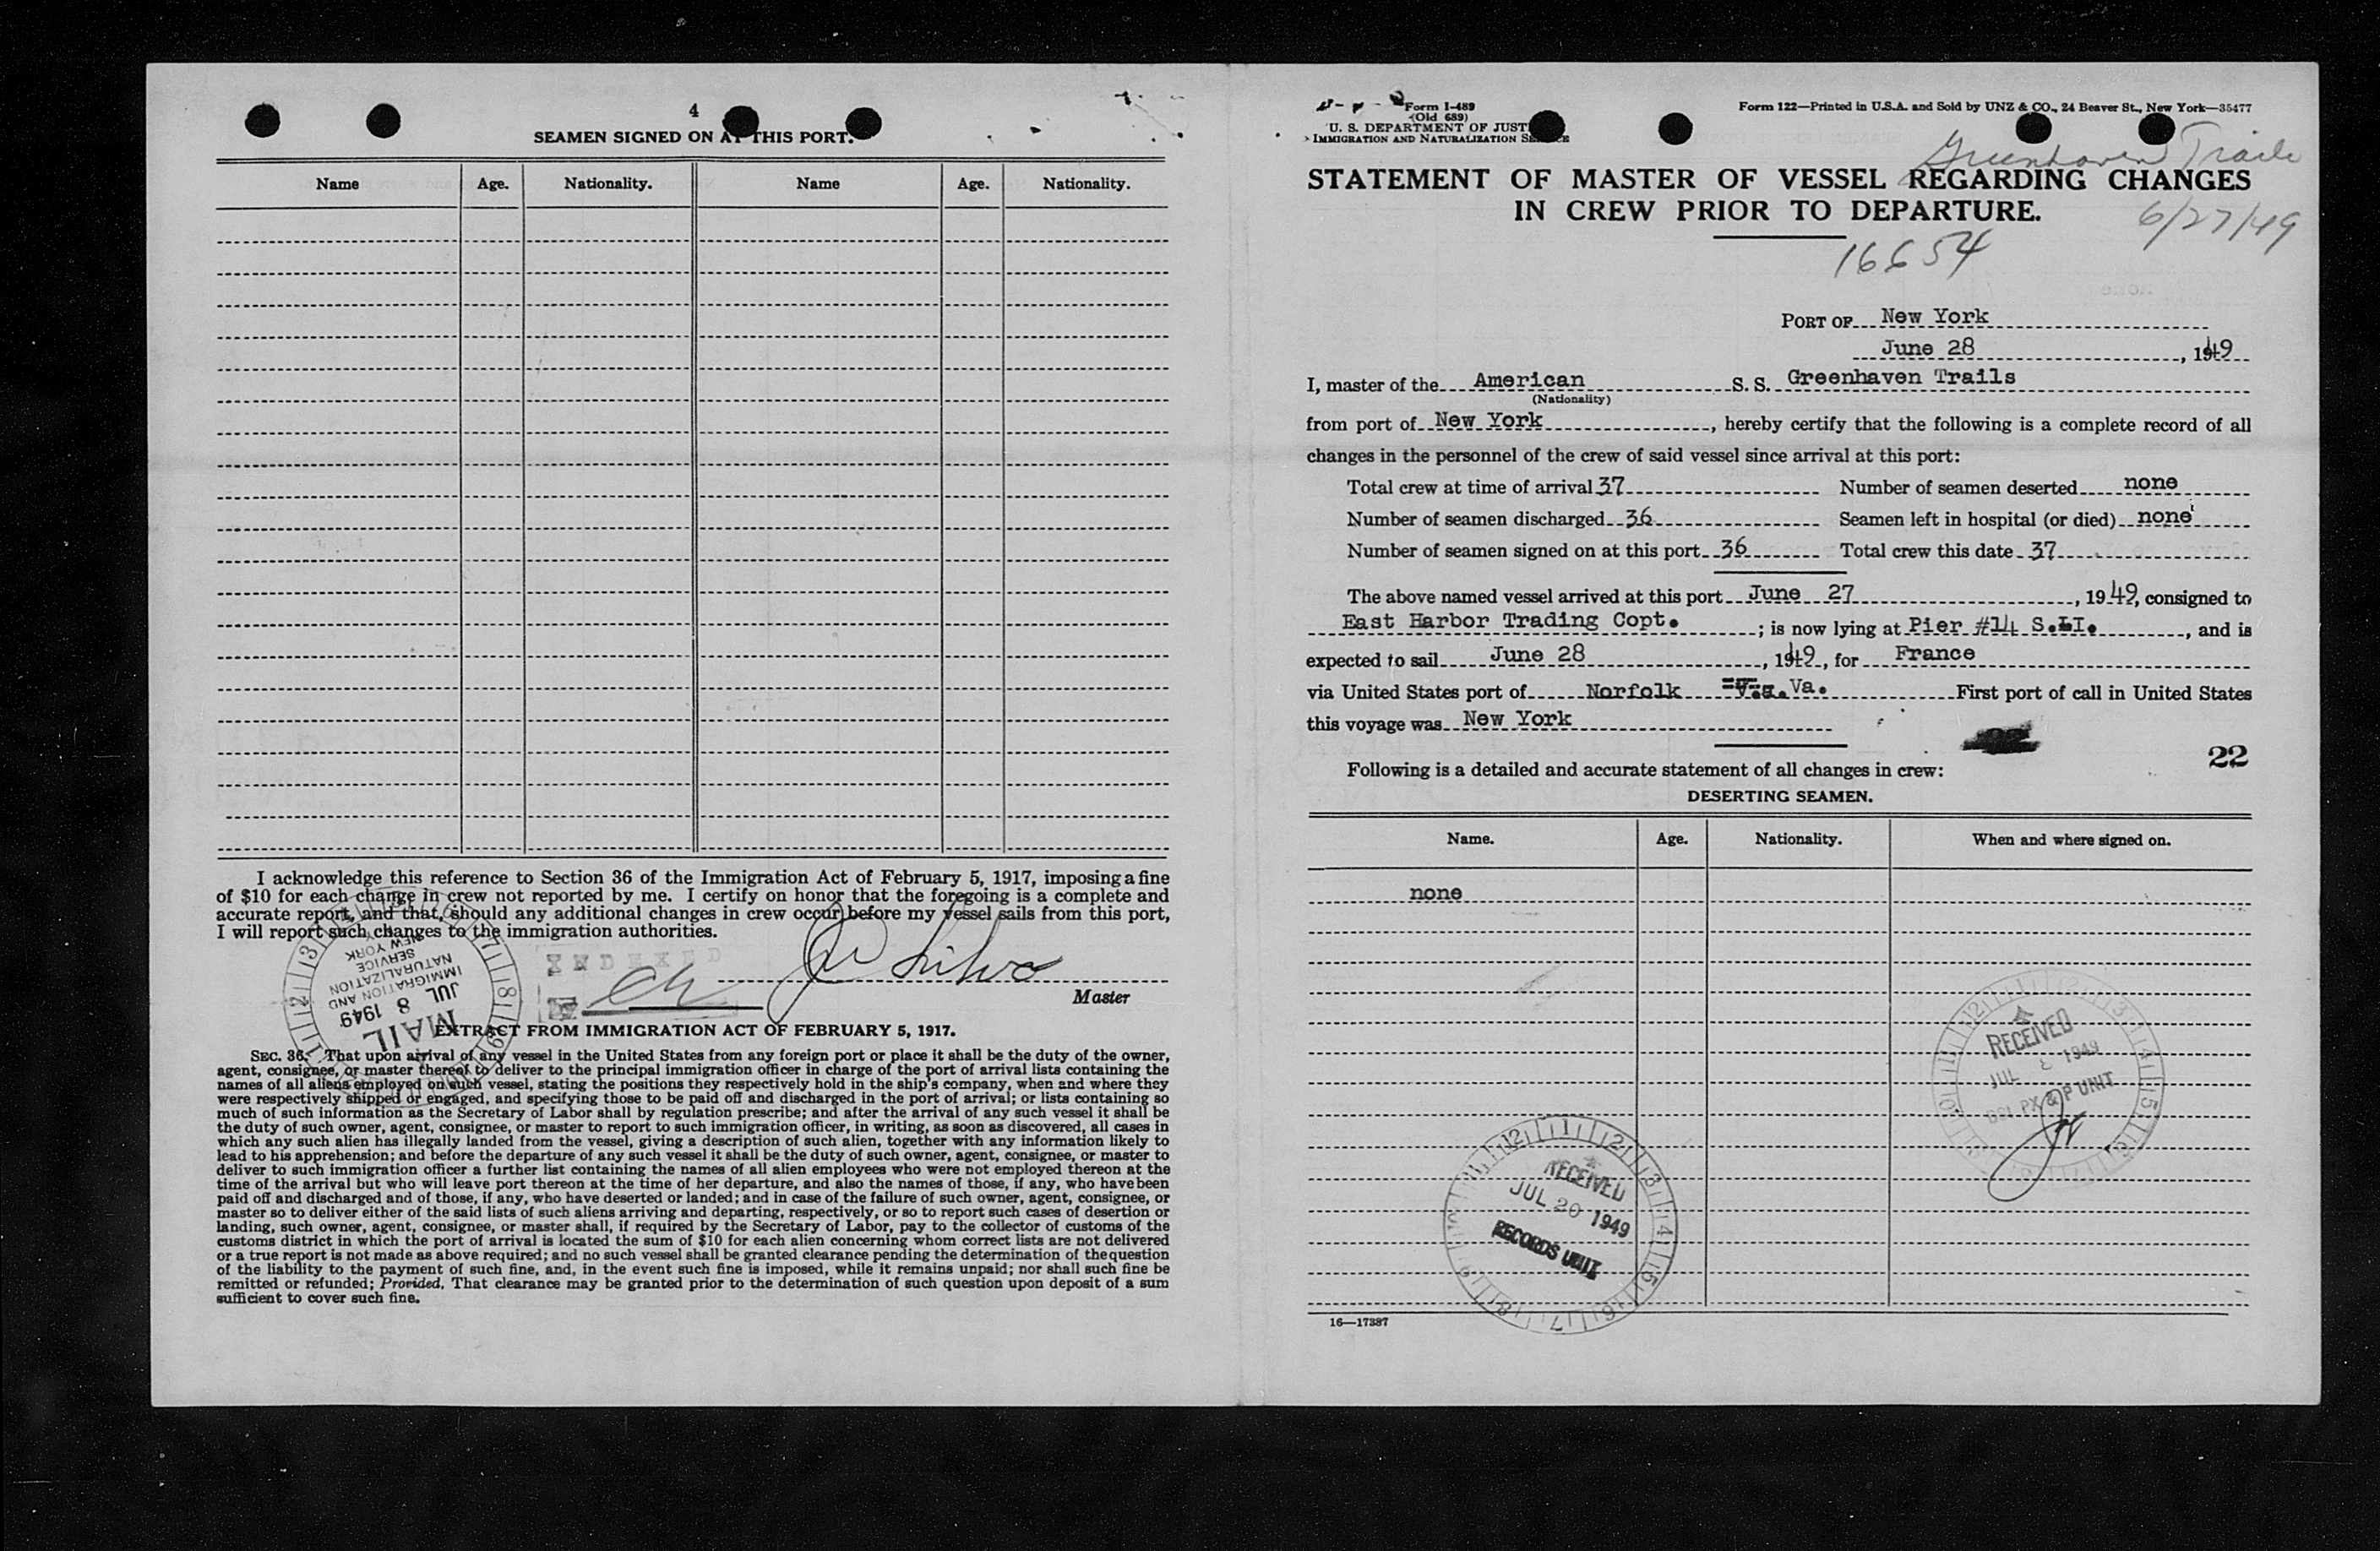 4
SEAMEN SIGNED ON AT THIS PORT.
Name Age. Nationality. Name Age. Nationality.
I acknowledge this reference to Section 36 of the Immigration Act of February 5, 1917, imposing a fine
of $10 for each change in crew not reported by me. I certify on honor that the foregoing is a complete and
accurate report, and that, should any additional changes in crew occur before my vessel sails from this port,
I will report such changes to the immigration authorities.
INDEXED
Master
MAIL
JUL 8 1949
IMMIGRATION AND
NATURALIZATION
SERVICE
NEW YORK
EXTRACT FROM IMMIGRATION ACT OF FEBRUARY 5, 1917.
SEC. 36. That upon arrival of any vessel in the United States from any foreign port or place it shall be the duty of the owner,
agent, consignee, or master thereof to deliver to the principal immigration officer in charge of the port of arrival lists containing the
names of all aliens employed on such vessel, stating the positions they respectively hold in the ship's company, when and where they
were respectively shipped or engaged, and specifying those to be paid off and discharged in the port of arrival; or lists containing so
much of such information as the Secretary of Labor shall by regulation prescribe; and after the arrival of any such vessel it shall be
the duty of such owner, agent, consignee, or master to report to such immigration officer, in writing, as soon as discovered, all cases in
which any such alien has illegally landed from the vessel, giving a description of such alien, together with any information likely to
lead to his apprehension; and before the departure of any such vessel it shall be the duty of such owner, agent, consignee, or master to
deliver to such immigration officer a further list containing the names of all alien employees who were not employed thereon at the
time of the arrival but who will leave port thereon at the time of her departure, and also the names of those, if any, who have been
paid off and discharged and of those, if any, who have deserted or landed; and in case of the failure of such owner, agent, consignee, or
master so to deliver either of the said lists of such aliens arriving and departing, respectively, or so to report such cases of desertion or
landing, such owner, agent, consignee, or master shall, if required by the Secretary of Labor, pay to the collector of customs of the
customs district in which the port of arrival is located the sum of $10 for each alien concerning whom correct lists are not delivered
or a true report is not made as above required; and no such vessel shall be granted clearance pending the determination of the question
of the liability to the payment of such fine, and, in the event such fine is imposed, while it remains unpaid; nor shall such fine be
remitted or refunded; Provided, That clearance may be granted prior to the determination of such question upon deposit of a sum
sufficient to cover such fine.
Form I-489
(Old 689)
U. S. DEPARTMENT OF JUST
IMMIGRATION AND NATURALIZATION SERVICE
Form 122—Printed in U.S.A. and Sold by UNZ & CO., 24 Beaver St., New York—35477
Greenhaven Trails
STATEMENT OF MASTER OF VESSEL REGARDING CHANGES
IN CREW PRIOR TO DEPARTURE.
6/27/49
16654
PORT OF New York
June 28, 1949
I, master of the American S. S. Greenhaven Trails
(Nationality)
from port of New York, hereby certify that the following is a complete record of all
changes in the personnel of the crew of said vessel since arrival at this port:
Total crew at time of arrival 37 Number of seamen deserted none
Number of seamen discharged 36 Seamen left in hospital (or died) none
Number of seamen signed on at this port 36 Total crew this date 37
The above named vessel arrived at this port June 27, 1949, consigned to
East Harbor Trading Copt.; is now lying at Pier #14 S.I., and is
expected to sail June 28, 1949, for France
via United States port of Norfolk Va. First port of call in United States
this voyage was New York
22
Following is a detailed and accurate statement of all changes in crew:
DESERTING SEAMEN.
Name. Age. Nationality. When and where signed on.
none
RECEIVED
JUL 1949
P UNIT
RECEIVED
JUL 20 1949
RECORDS UNIT
16—17387